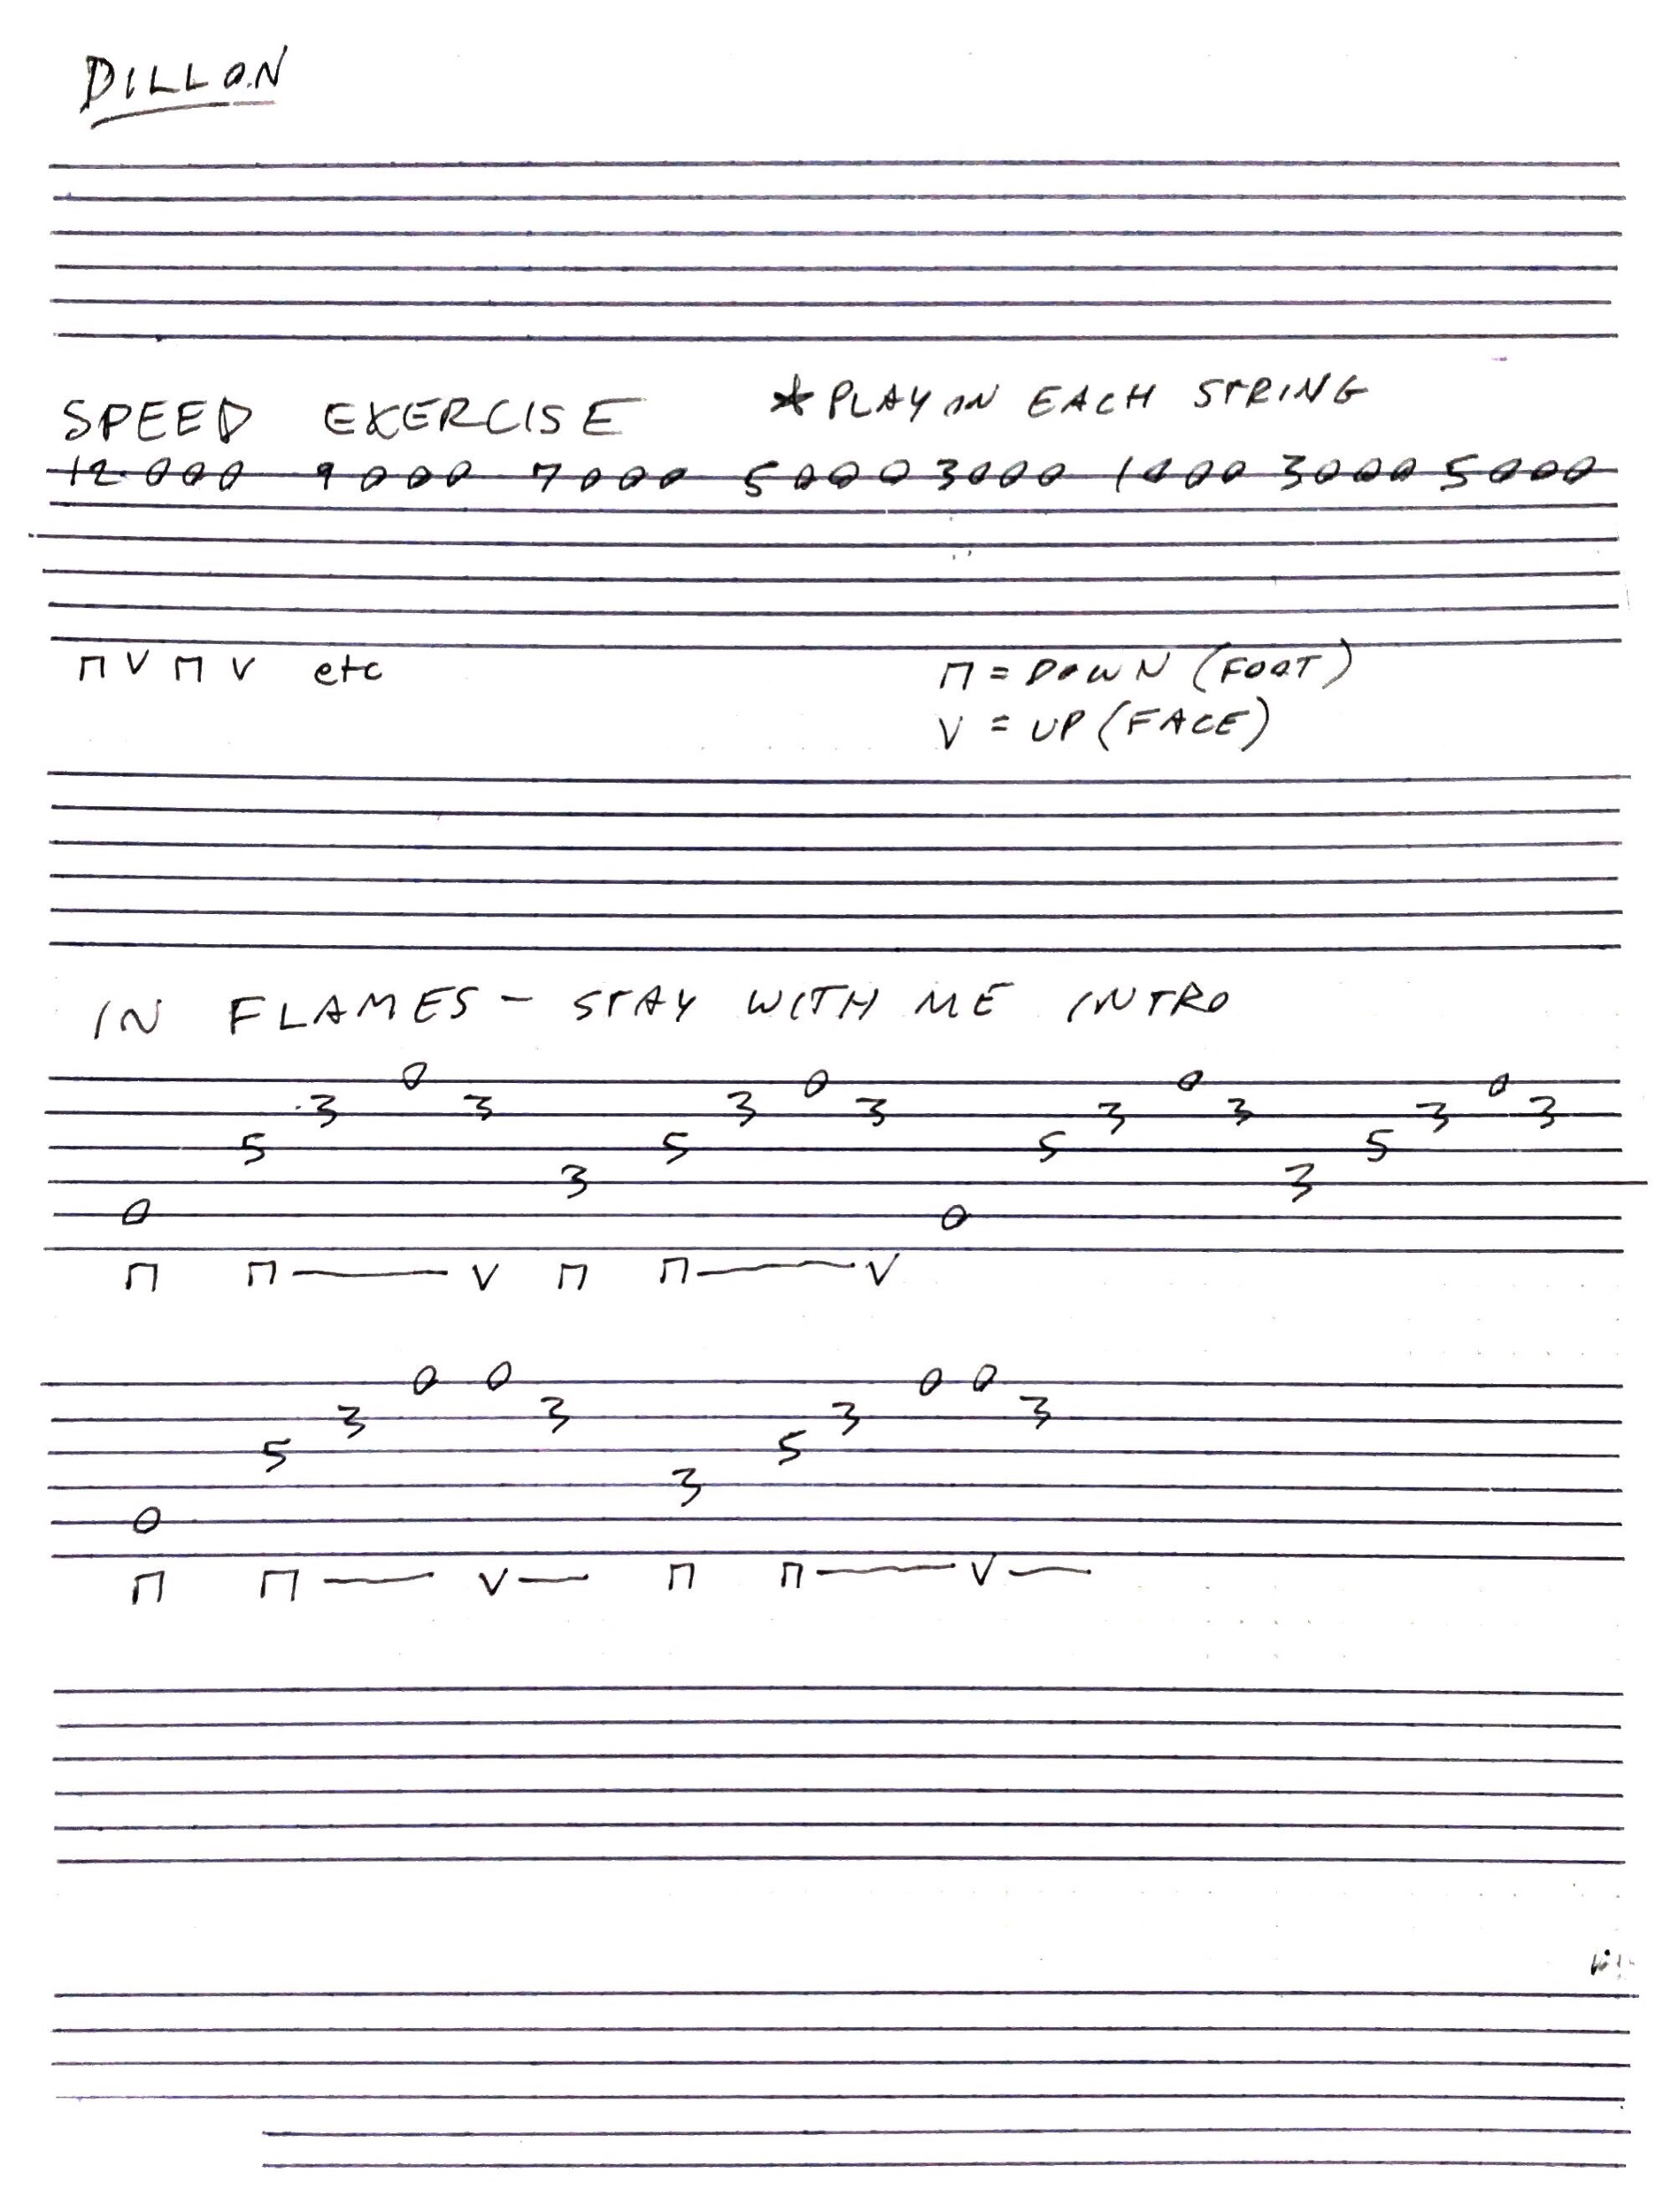 DILLON
SPEED EXERCISE *PLAY ON EACH STRING
12 0 0 0 9 0 0 0 7 0 0 0 5 0 0 0 3 0 0 0 1 0 0 0 3 0 0 0 5 0 0 0
П V П V etc П = DOWN (FOOT)
V = UP (FACE)
IN FLAMES - STAY WITH ME INTRO
0 0 0 0
3 3 3 3 3 3 3 3
5 5 5 5
3 3
0 0
П П — V П П — V
0 0 0 0
3 3 3 3
5 5
3
0
П П — V — П П — V —